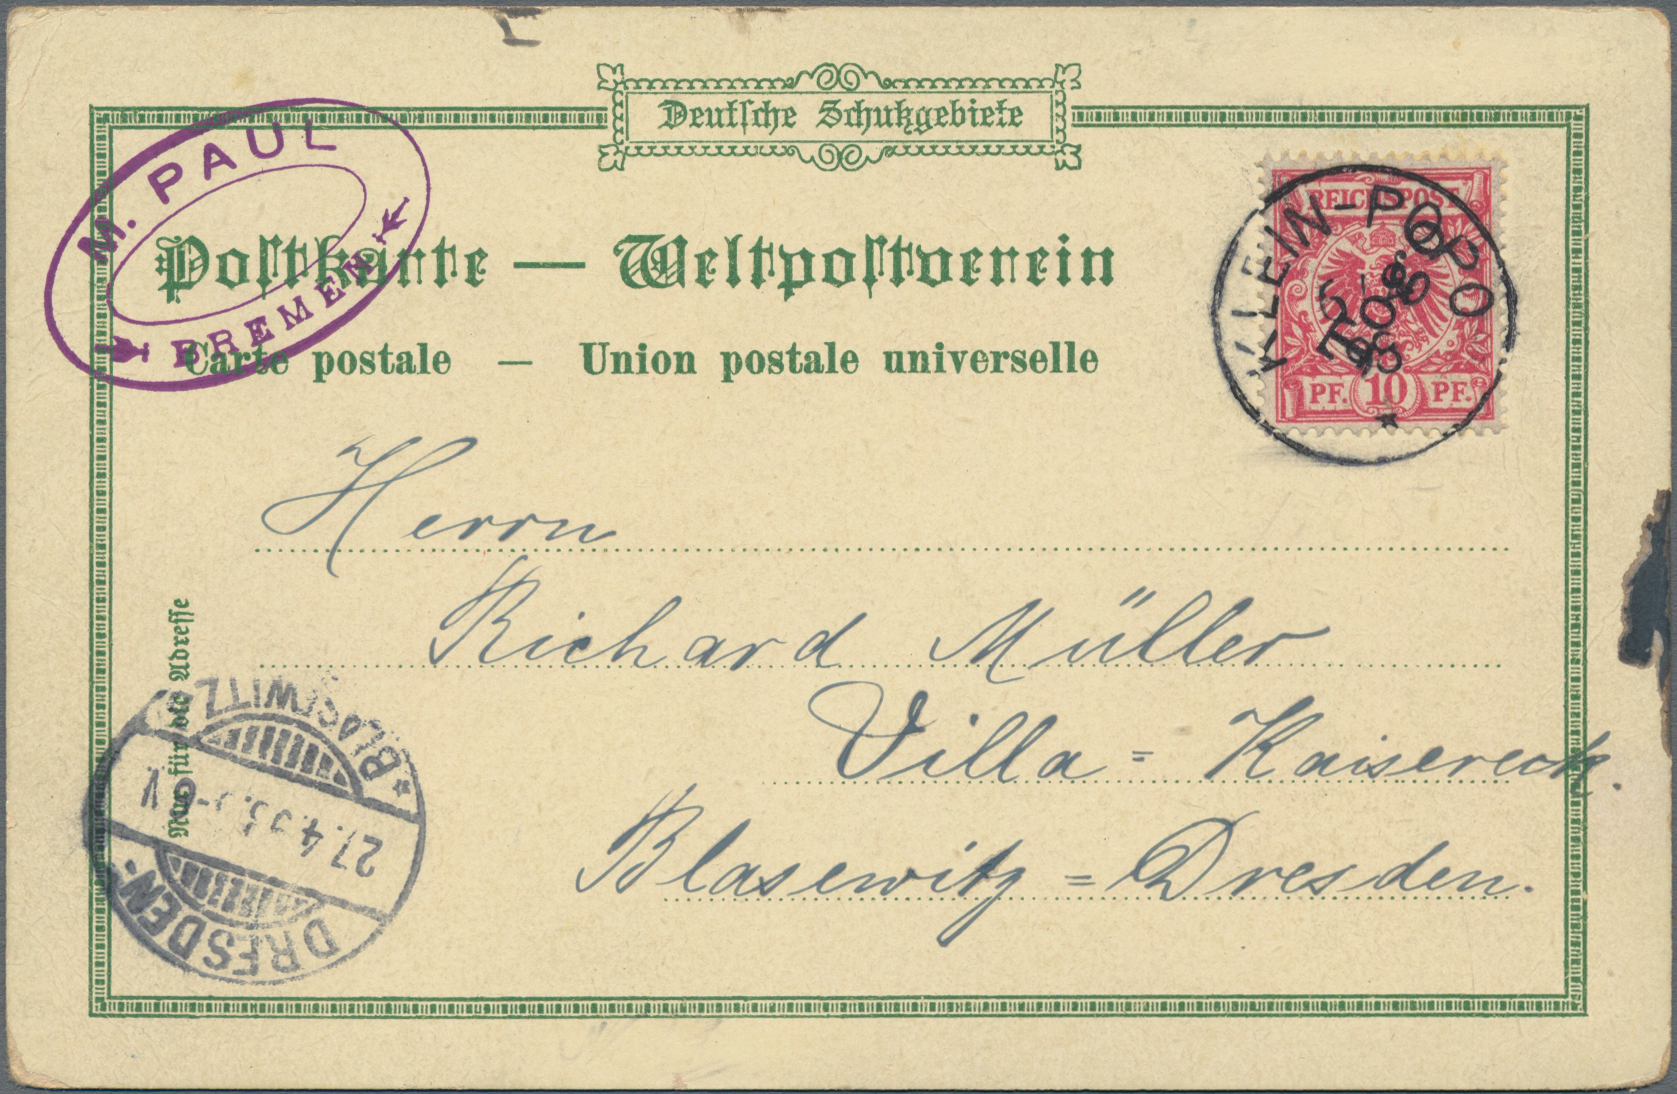 Deutsche Schutzgebiete
M. PAUL
BREMEN
Postkarte — Weltpostverein
Carte postale — Union postale universelle
REICHSPOST
PF. 10 PF.
TOGO
KLEIN-POPO
Herrn
Richard Müller
Villa = Kaisereck.
Blasewitz = Dresden.
Nur für die Adresse
BLASEWITZ
27.4.
V
DRESDEN-